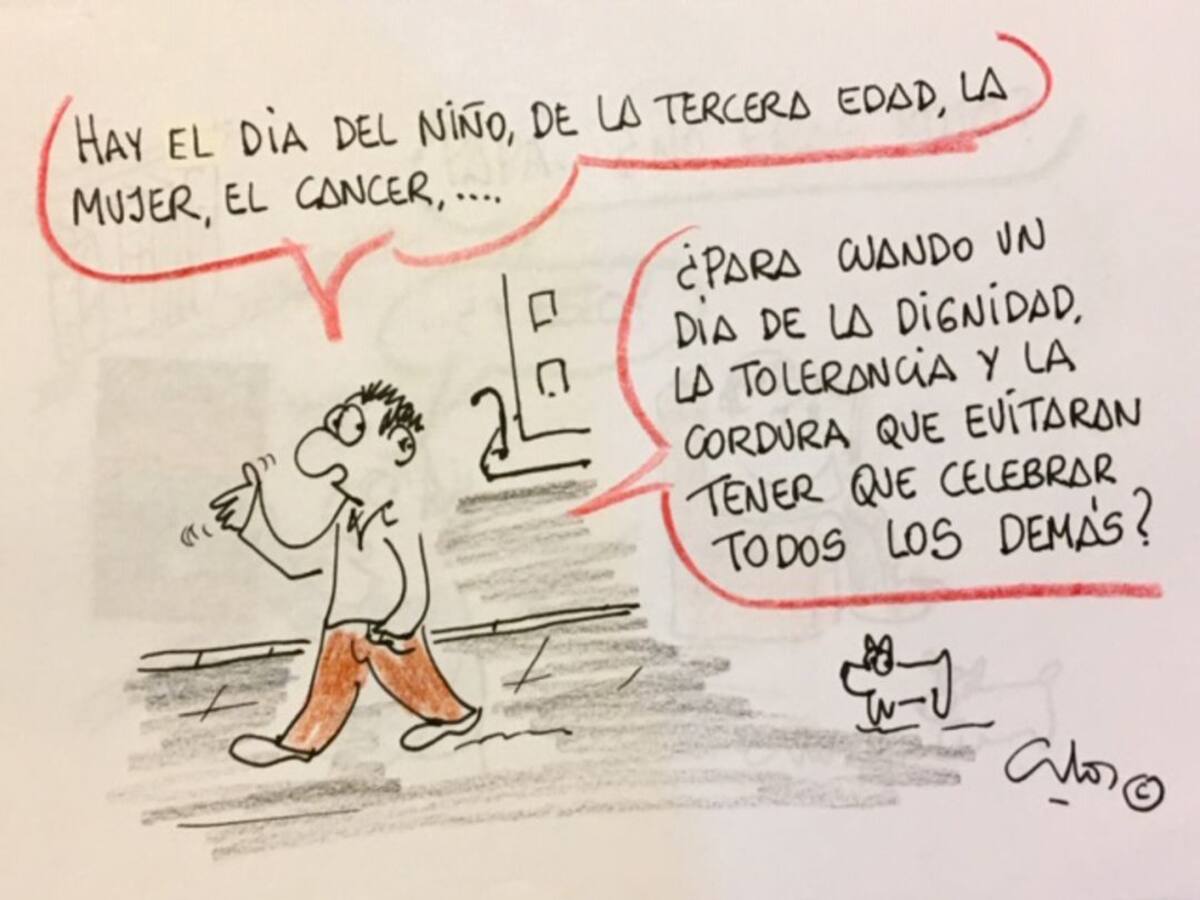 HAY EL DIA DEL NIÑO, DE LA TERCERA EDAD, LA
MUJER, EL CANCER, ....
¿PARA CUANDO UN
DIA DE LA DIGNIDAD,
LA TOLERANCIA Y LA
CORDURA QUE EVITARAN
TENER QUE CELEBRAR
TODOS LOS DEMÁS?
©